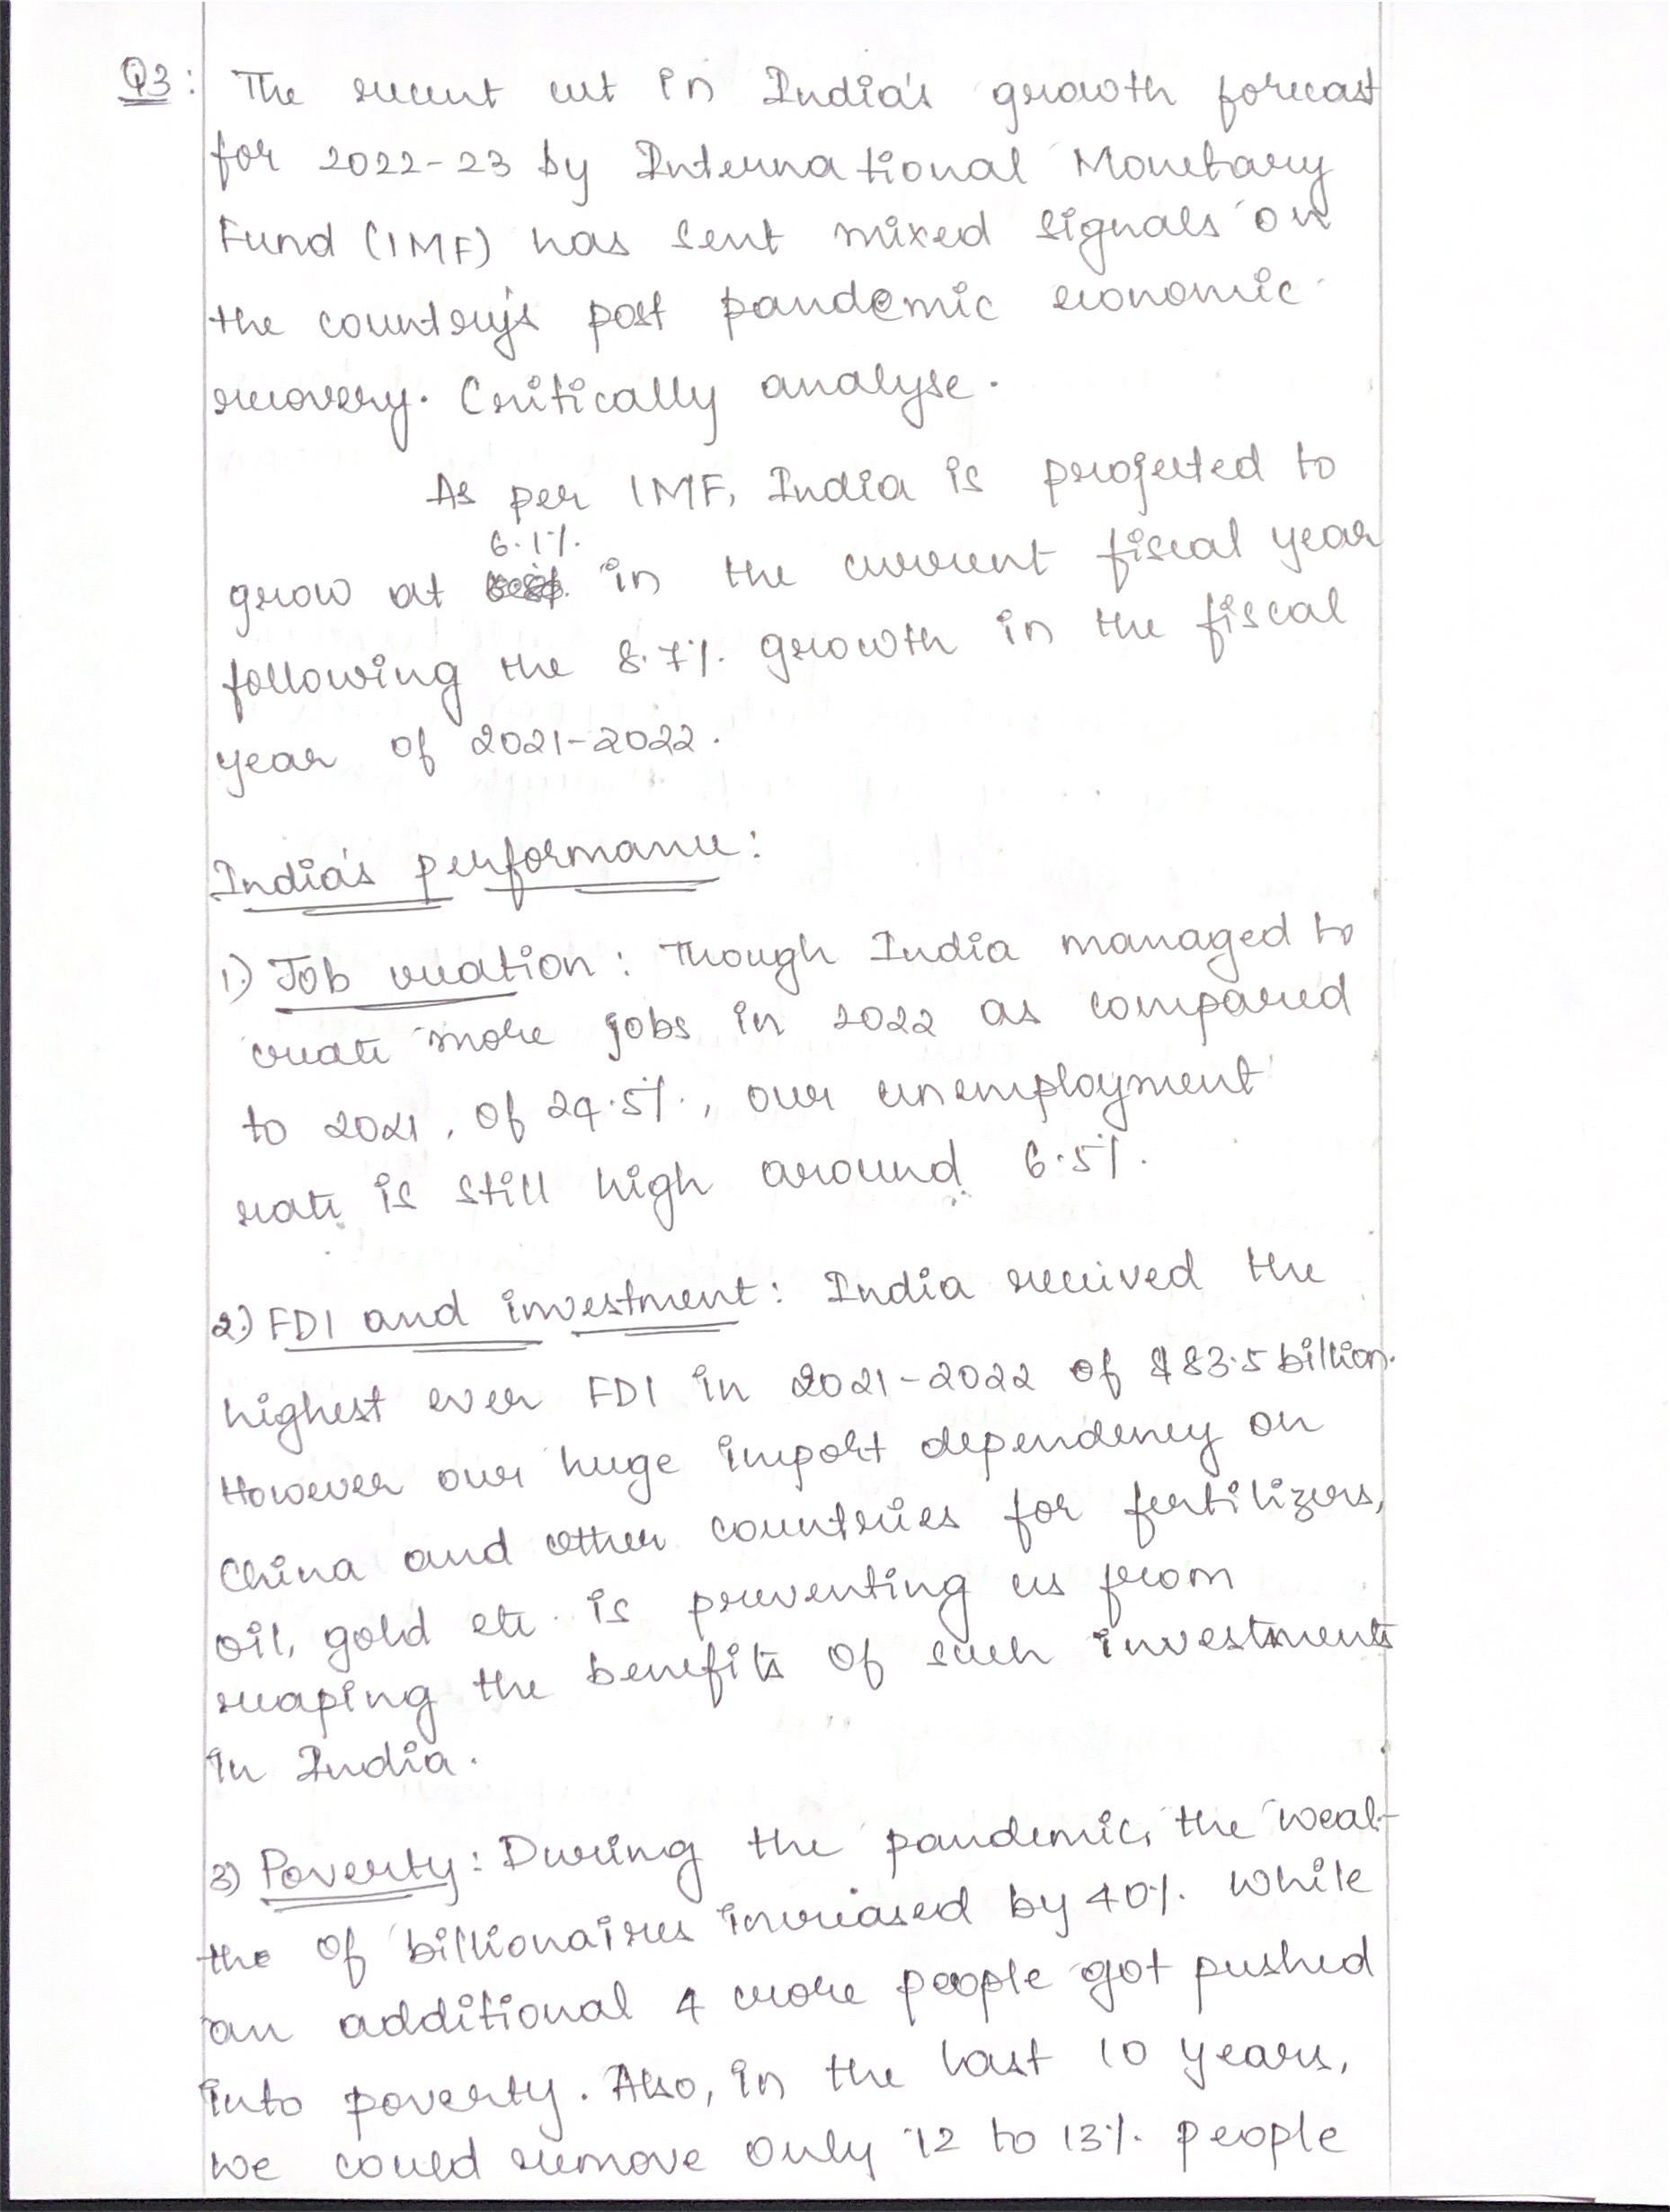 Q3: The recent cut in India's growth forecast
for 2022-23 by International Monetary
Fund (IMF) has sent mixed signals on
the country's post pandemic economic
recovery. Critically analyse.
As per IMF, India is projected to
6.1%.
grow at in the current fiscal year
following the 8.7%. growth in the fiscal
year of 2021-2022.
India's performance:
1) Job creation: Though India managed to
create more jobs in 2022 as compared
to 2021, of 24.5%., our unemployment
rate is still high around 6.5%.
2) FDI and investment: India received the
highest ever FDI in 2021-2022 of $83.5 billion.
However our huge import dependency on
China and other countries for fertilizers,
oil, gold etc. is preventing us from
reaping the benefits of such investments
in India.
3) Poverty: During the pandemic, the weal-
the of billionaires increased by 40%. while
an additional 4 crore people got pushed
into poverty. Also, in the last 10 years,
we could remove only 12 to 13%. people